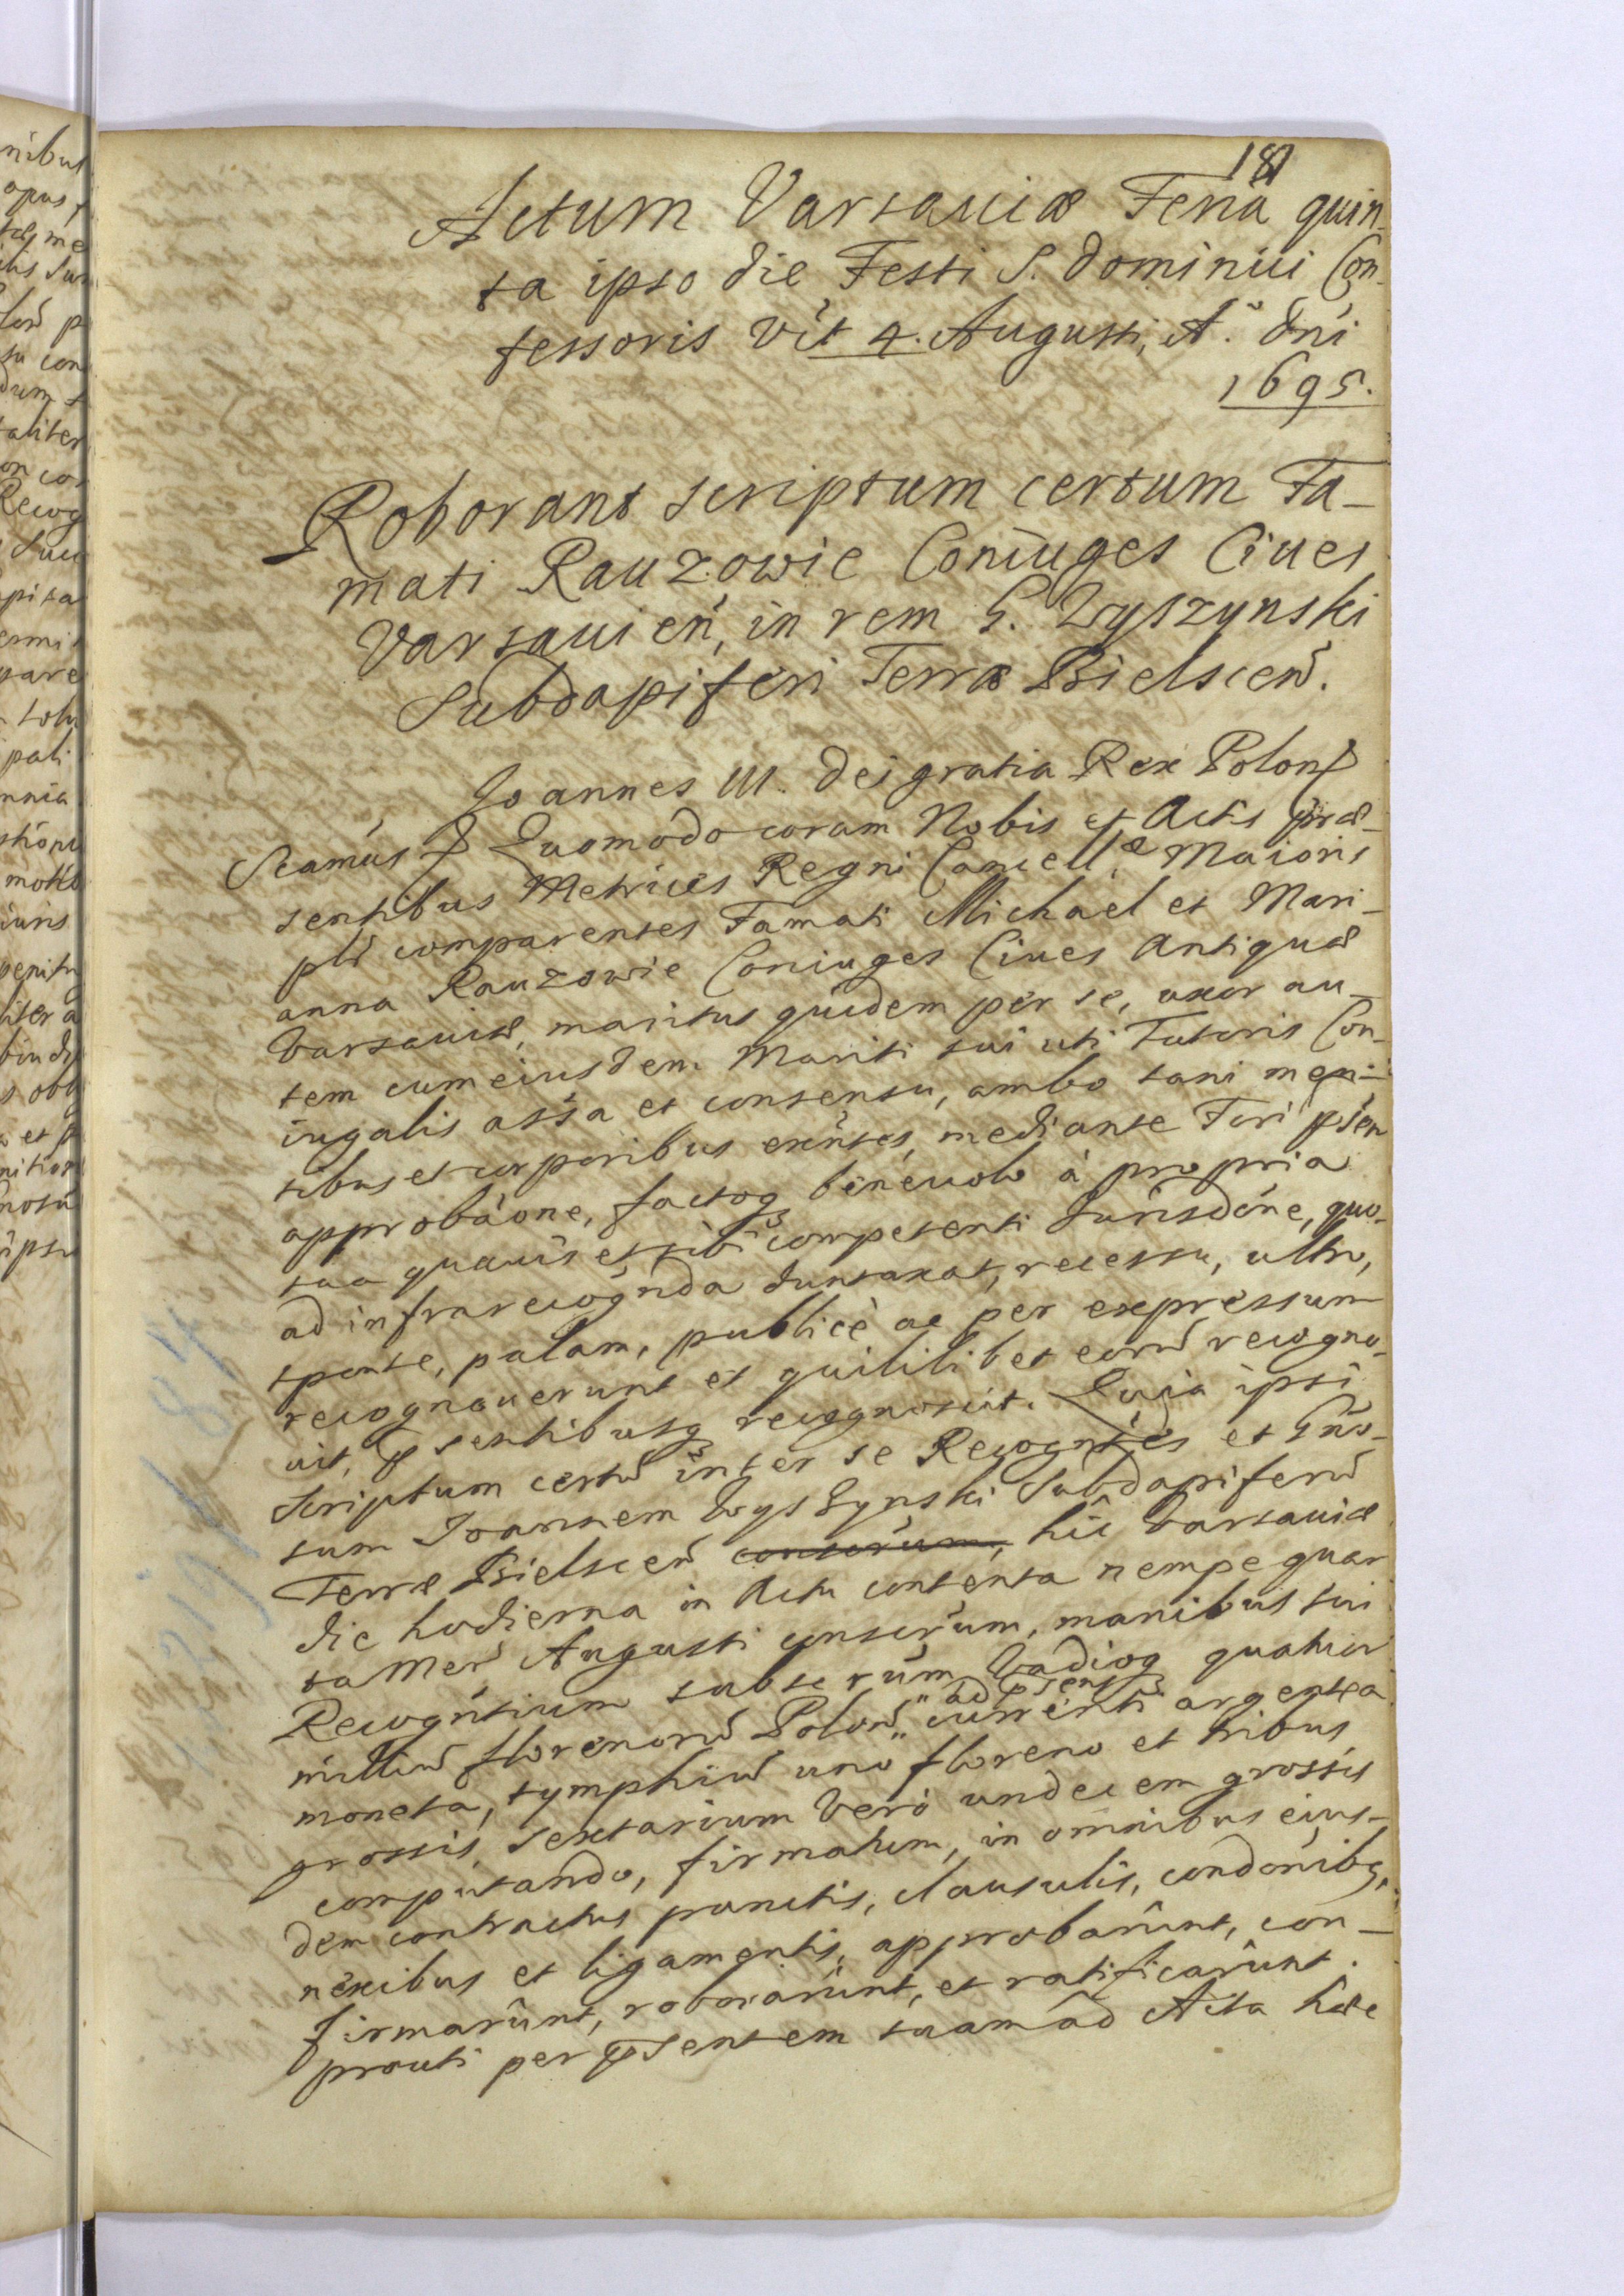 181
Actum Varsauiæ Feria quin-
ta ipso die Festi S. Dominici Con-
fessoris vit 4. Augusti, A.º Dni
1695.
Roborant scriptum certum Fa-
mati Rauzowie Coniuges Ciues
Varsauien, in rem G. Wyszynski
Subdapiferi Terræ Bielscen.
Joannes III. Dei gratia Rex Polon
Seamús Quomodo coram Nobis et Actis præ-
sentibus Metrices Regni Cancell.æ Maioris
plr comparentes Famati Michael et Mari-
anna Rauzowie Coniuges Ciues Antiquæ
Varsauiæ, maritus quidem per se, uxor au-
tem cum eiusdem Mariti sui uti Tutoris Con-
iugalis assa et consensu, ambo sani men-
tibus et corporibus exntes, mediante Fori psen
approbaone, factoq benevolo à propria
sua quavis et sibi competenti Jurisdone, quo-
ad infrarecognda duntaxat, recessu, ultro,
sponte, palam, publicè ac per expressum
recognouerunt et quilibet eoru recogno-
uit, psentibusq recognoscit. Quia ipsi
Scriptum certu inter se Recogntes et Gno-
sum Joannem Wyszynski Subdapiferu
Terræ Bielscen conscrum, hic Varsauiæ
die hodierna in Actu contenta nempe quar
ta Men Augusti conscrum, manibus sui
Recogntium subscrum Vadioq quatuor
milliu florenoru Polon " ad psens " currenti argentea
moneta, tymphiu uno floreno et tribus
grossis, sextarium verò undecem grossis
computando, firmatum, in omnibus eius-
dem contractus punctis, clausulis, condonibq,
nexibus et ligamentis, approbarunt, con-
firmarunt, roborarunt, et ratificarunt.
prouti per psentem suam ad Acta hæc